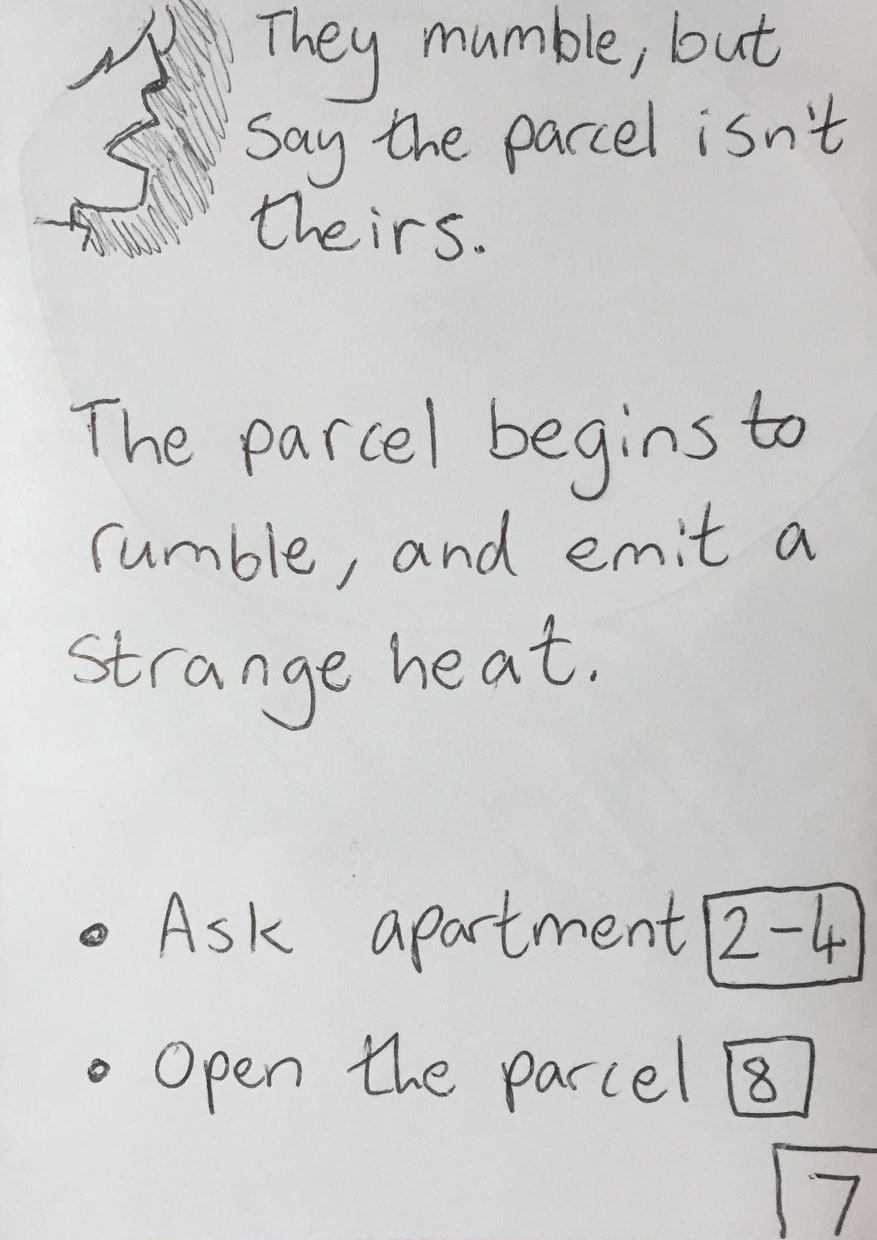 They mumble, but
say the parcel isn't
theirs.
The parcel begins to
rumble, and emit a
strange heat.
• Ask apartment 2-4
• Open the parcel 8
7